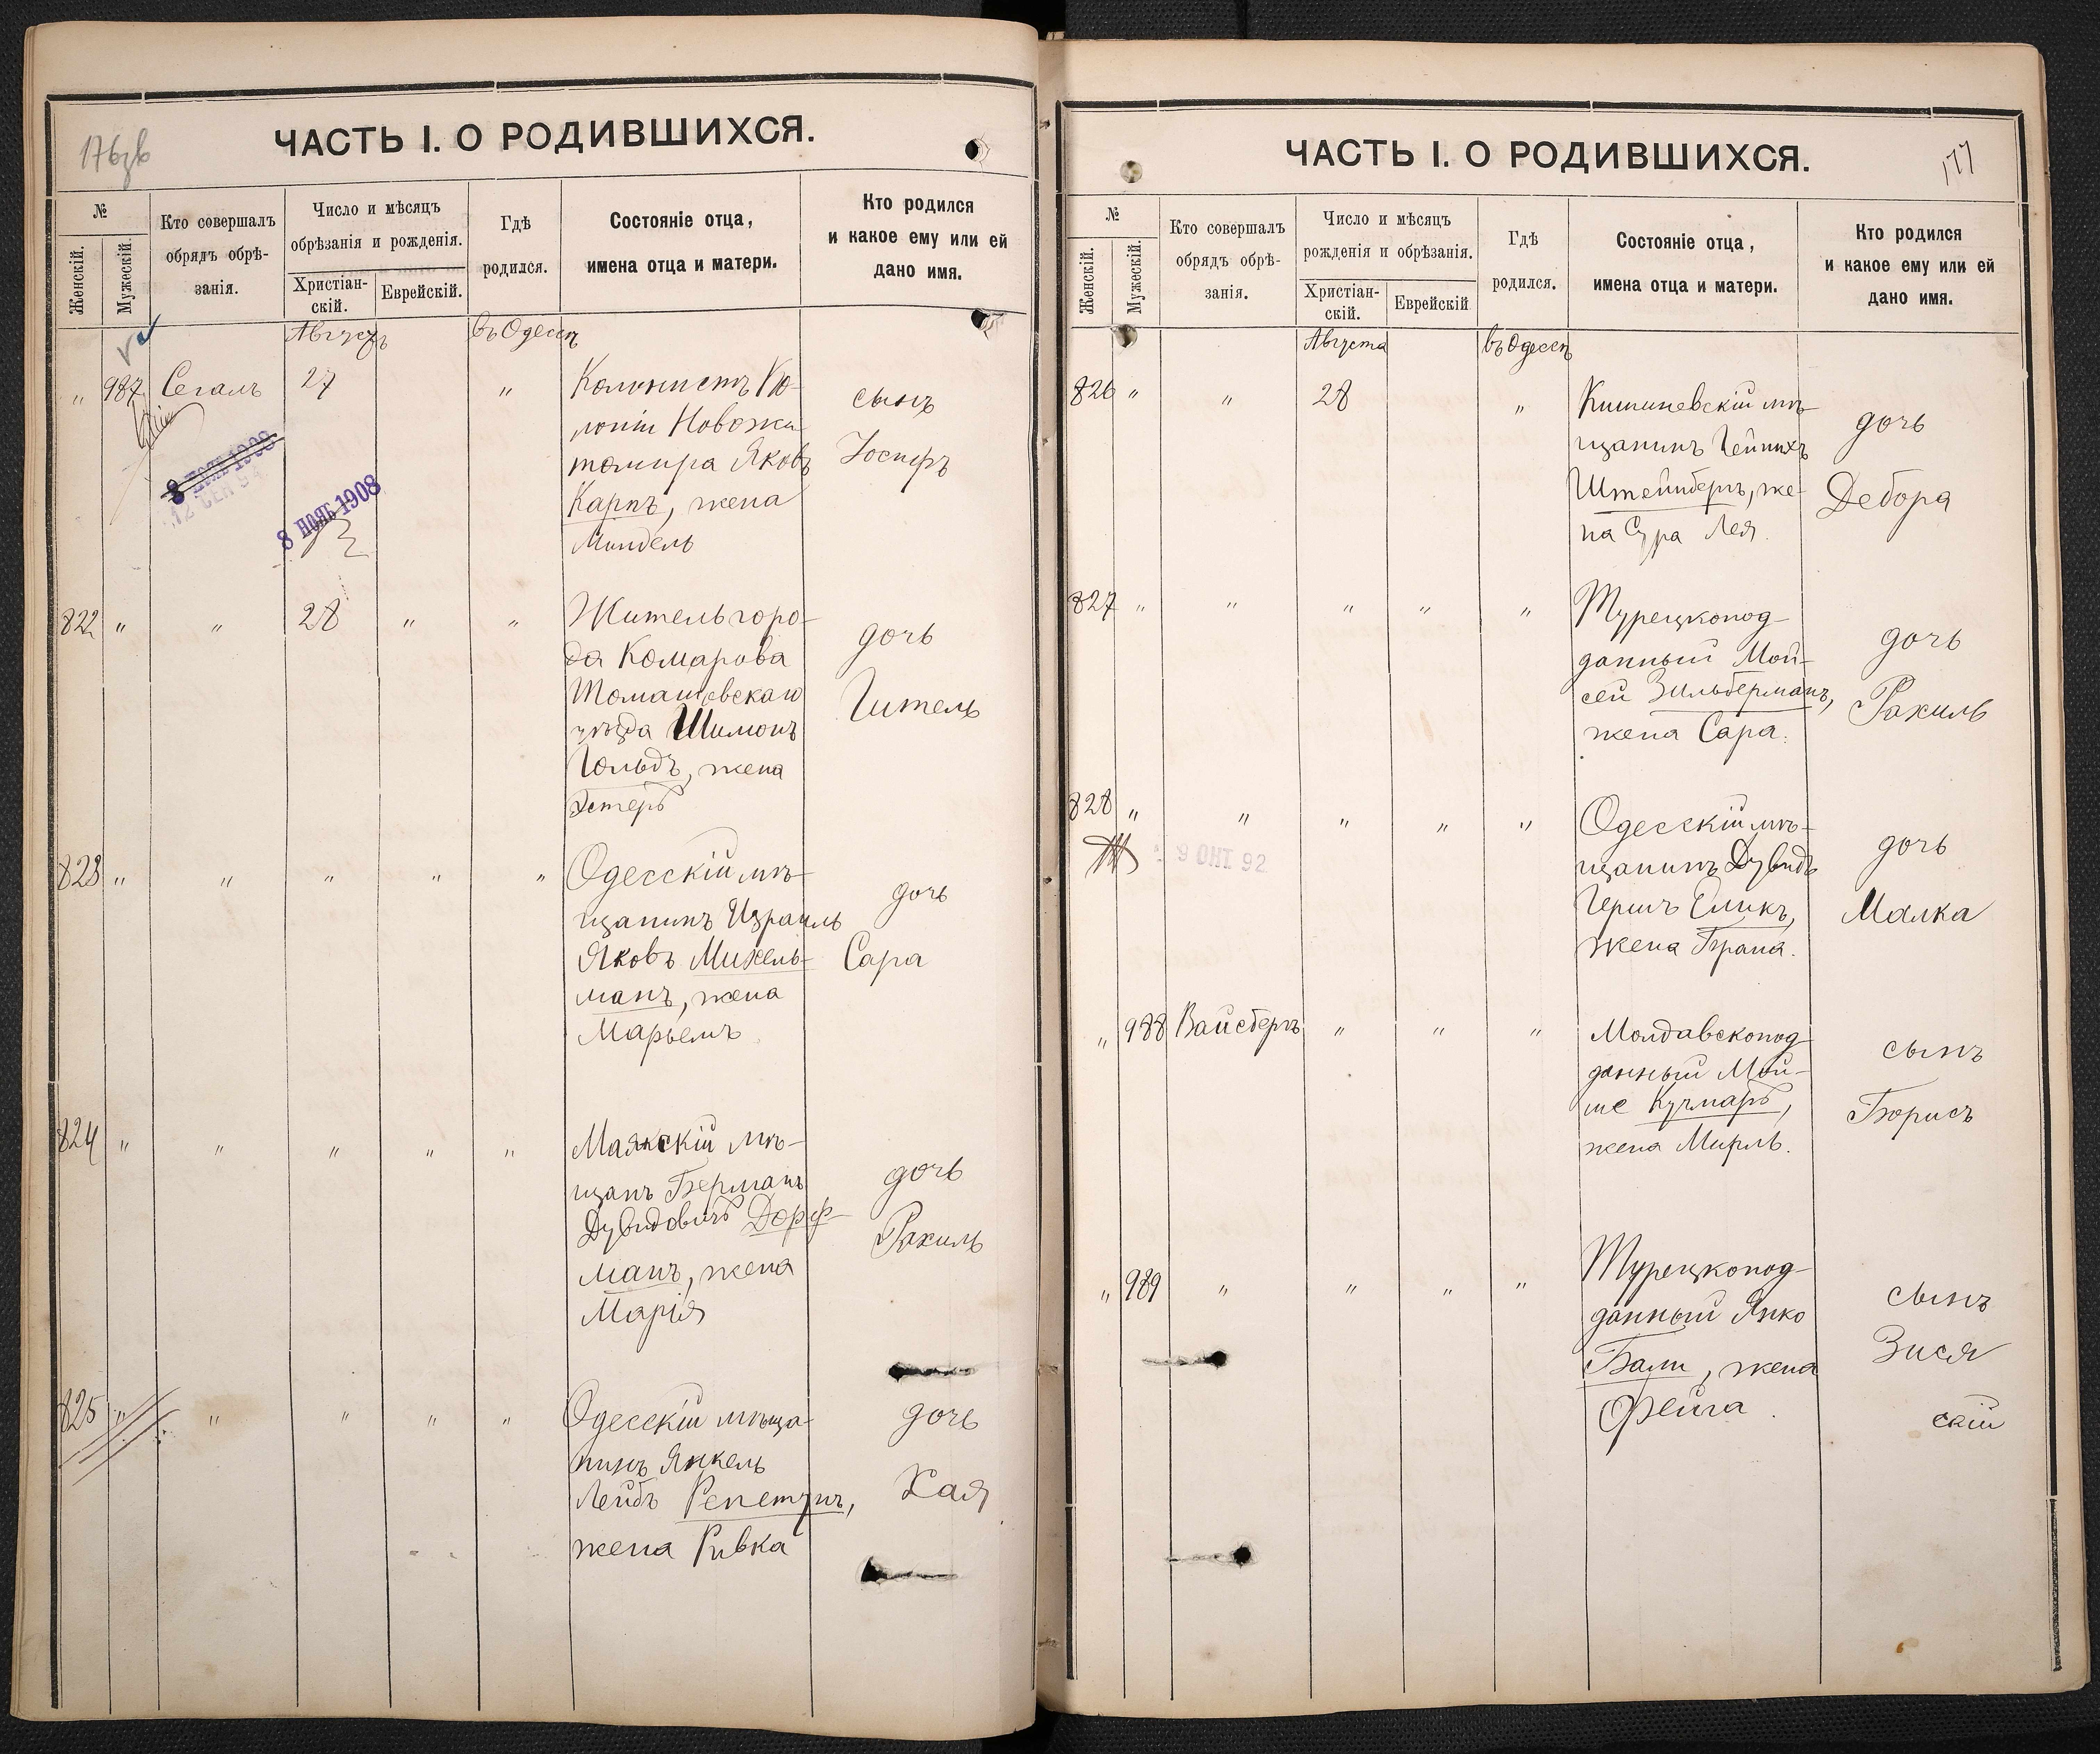 176об
ЧАСТЬ I. О РОДИВШИХСЯ.
№
Женскій.
Мужескій.
Кто совершалъ
обрядъ обрѣ-
занія.
Число и мѣсяцъ
обрѣзанія и рожденія.
Христіан-
скій.
Еврейскій.
Гдѣ
родился.
Состояніе отца,
имена отца и матери.
Кто родился
и какое ему или ей
дано имя.
Августъ
въ Одессѣ
„ 987 Сегалъ 27 „
Колонистъ Ко-
лоніи Новожи-
томира Яковъ
Карпъ, жена
Миндель
сынъ
Іосифъ
8 НОЯБ 1908
12 СЕН 94
8 НОЯБ 1908
822 „ „ 28 „ „
Житель горо-
да Комарова
Томашевскаго
уѣзда Шимонъ
Гольдъ, жена
Эстеръ
дочь
Гитель
823 „ „ „ „ „
Одесскій мѣ-
щанинъ Израиль
Яковъ Михель-
манъ, жена
Марьемъ
дочь
Сара
824 „ „ „ „ „
Маякскій мѣ-
щанъ Берманъ
Дувидовичъ Дорф-
манъ, жена
Марія
дочь
Рахиль
825 „ „ „ „ „
Одесскій мѣща-
нинъ Янкель
Лейбъ Репетунъ,
жена Ривка
дочь
Хая
177
ЧАСТЬ I. О РОДИВШИХСЯ.
№
Женскій.
Мужескій.
Кто совершалъ
обрядъ обрѣ-
занія.
Число и мѣсяцъ
рожденія и обрѣзанія.
Христіан-
скій.
Еврейскій
Гдѣ
родился.
Состояніе отца,
имена отца и матери.
Кто родился
и какое ему или ей
дано имя.
Августа
въ Одессѣ
826 „ „ 28 „
Кишиневскій мѣ-
щанинъ Гейнихъ
Штейнбергъ, же-
на Сура Лея.
дочь
Дебора
827 „ „ „ „ „
Турецкопод-
данный Мой-
сей Зильберманъ,
жена Сара.
дочь
Рахиль
828 „ „ „ „ „
9 ОКТ 92
Одесскій мѣ-
щанинъ Дувидъ
Гершъ Еликъ,
жена Брана.
дочь
Малка
„ 988 Вайсбергъ „ „ „
Молдавскопод-
данный Мой-
ше Кучмаръ,
жена Мирль.
сынъ
Борисъ
„ 989 „ „ „ „
Турецкопод-
данный Янко
Бали, жена
Фейга.
сынъ
Зися
скій